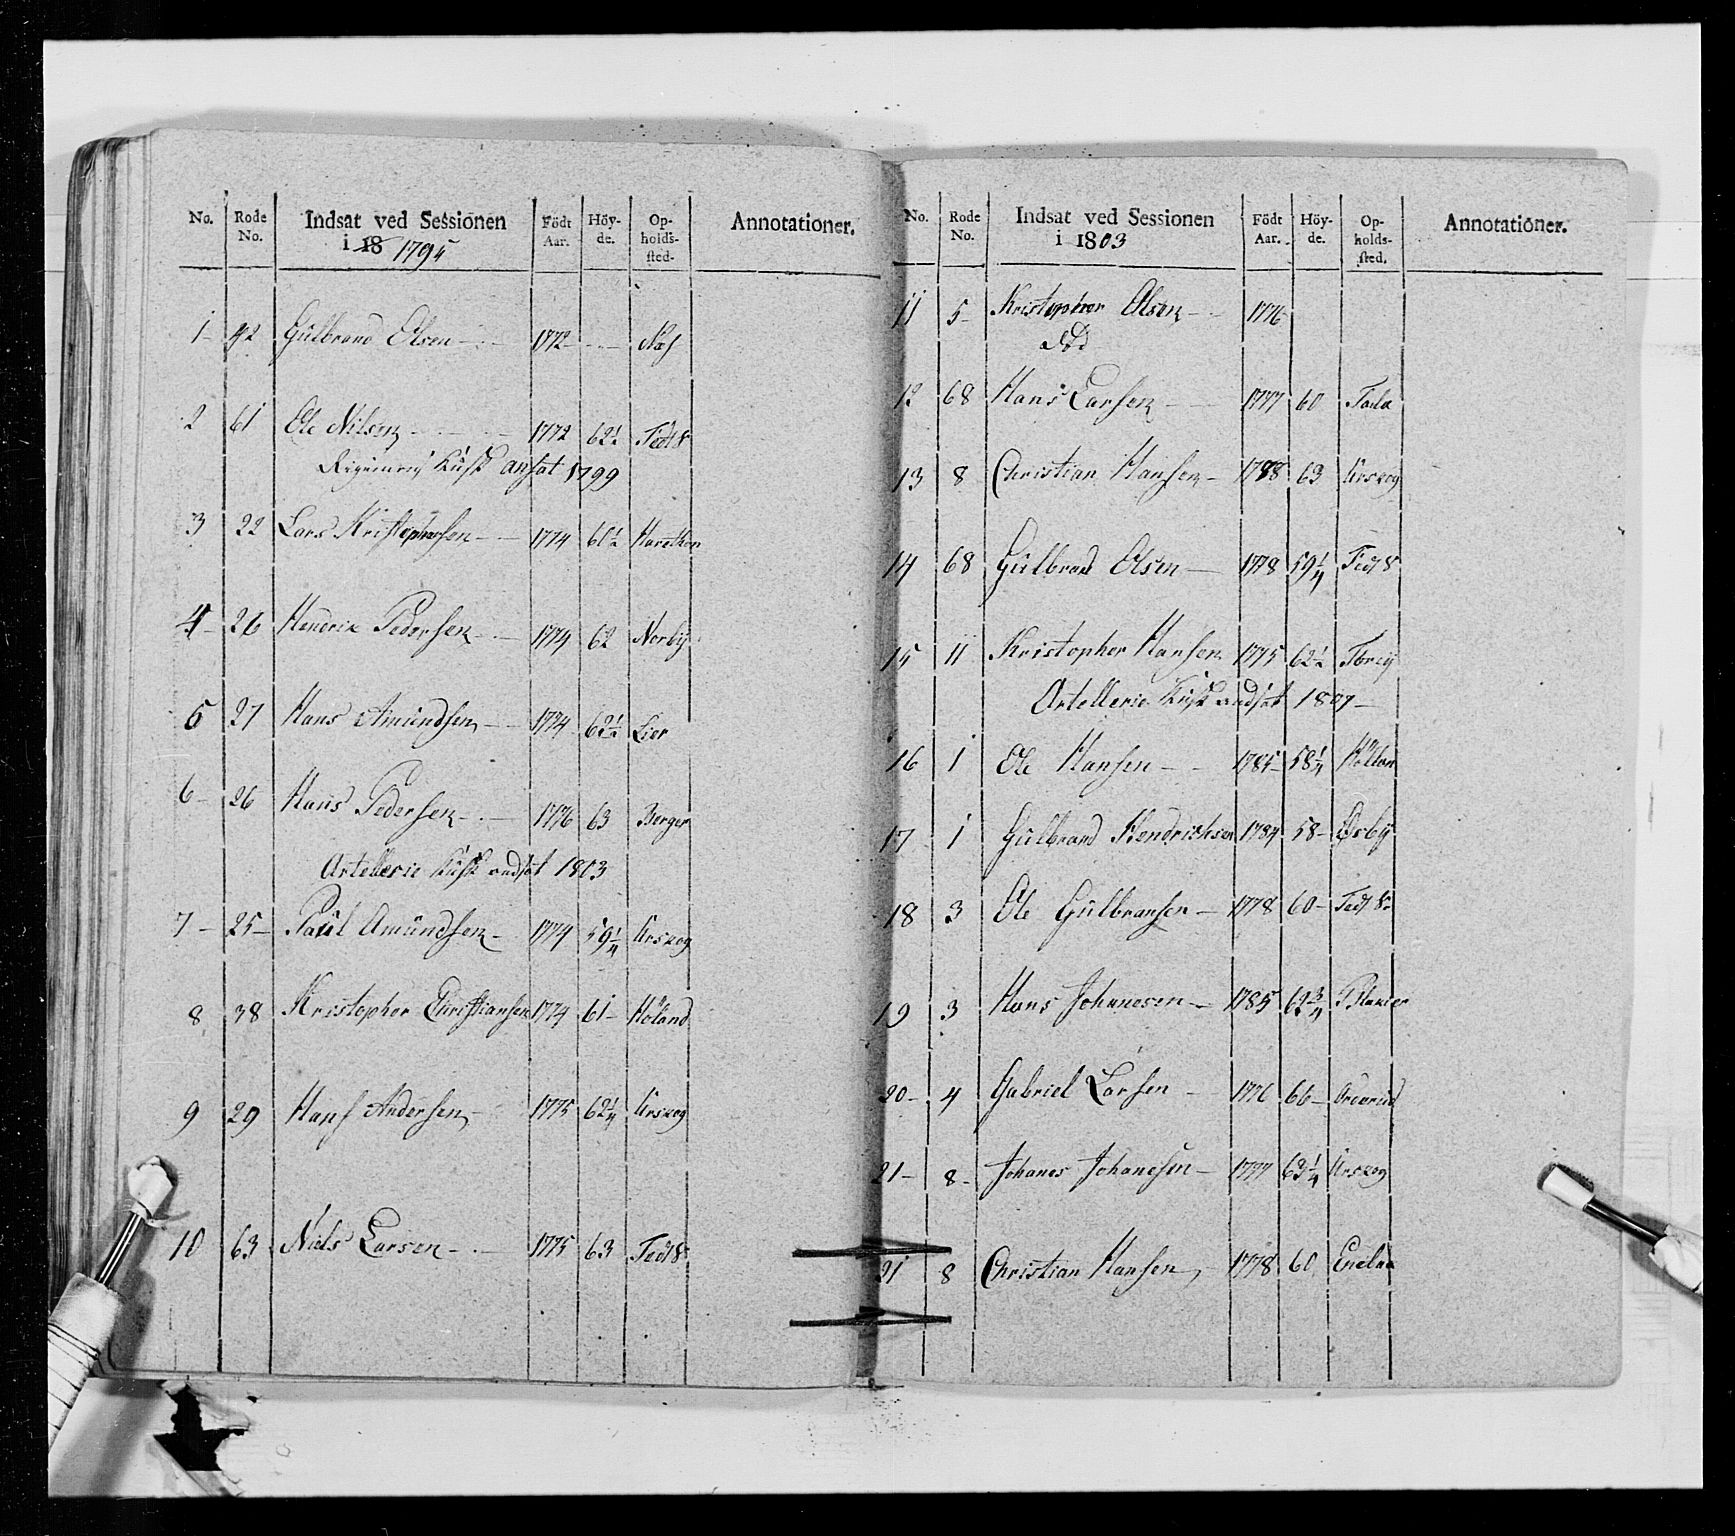 No. Rode No. Indsat ved Sessionen i 18 1795 Födt Aar. Höy-de. Op-holds-sted. Annotationer.
1 - 42 Gulbrand Olsen - 1772 - Næs
2 61 Ole Nilsen - 1772 62½
Kusk ansat 1799
3 22 Lars Kristophersen - 1774 60½
4 - 26 Henerik Pedersen - 1774 62 Norby
5 27 Hans Amundsen - 1774 62½ Lier
6 - 26 Hans Pedersen - 1776 63 Berger
Artellerie Kusk andsat 1803
7 - 25 - Paul Amundsen - 1774 59¼ Urskog
8 38 Kristopher Christiansen 1774 61 - Höland
9 29 Hans Andersen - 1775 62¼ Urskog
10 63 Niels Larsen - 1775 63
No. Rode No. Indsat ved Sessionen i 1803 Födt Aar. Höy-de. Op-holds-sted. Annotationer.
11 5 - Kristopher Olsen - 1776
Död
12 68 Hans Larsen - 1777 60
13 8 Christian Hansen - 1788 63 Urskog
14 68 Gulbrand Olsen - 1778 59¼
15 11 Kristopher Hansen 1775 62½
Artellerie Kusk andsat 1807 -
16 1 Ole Hansen - 1785 58¼
17 - 1 Gulbrand Hendrichsen 1784 58 -
18 3 Ole Gulbransen - 1778 60 -
19 3 Hans Johanesen - 1785 62¾
20 - 4 Gabriel Larsen - 1776 66 -
21 - 8 - Johanes Johanesen - 1777 63¼ Urskog
21 8 Christian Hansen, - 1778 60